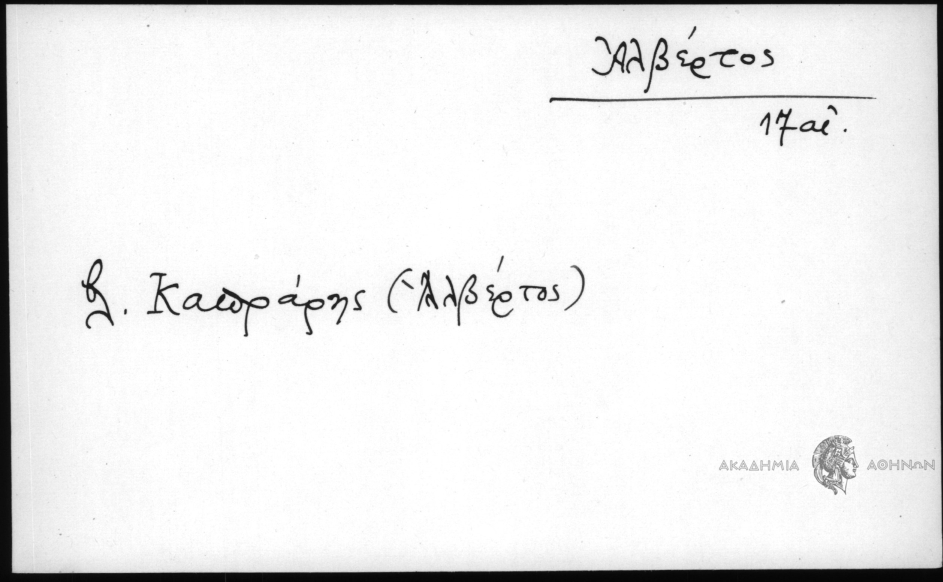 Ἀλβέρτος
17 αἰ.
βλ. Καπράρης (Ἀλβέρτος)
ΑΚΑΔΗΜΙΑ ΑΘΗΝΩΝ